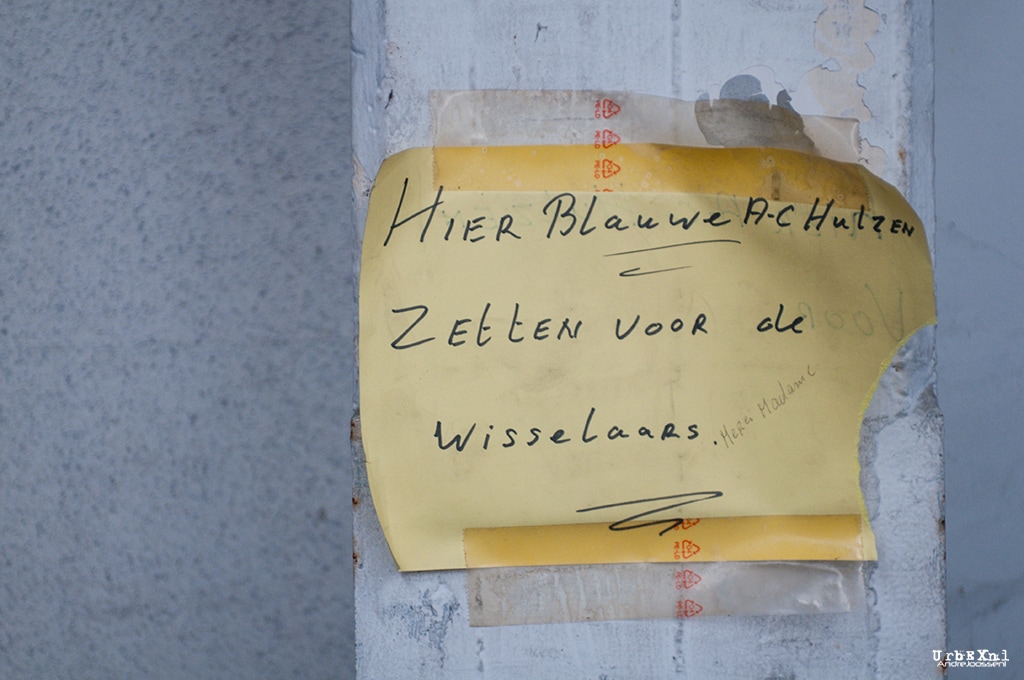 HIER Blauwe A-C Hulzen
Zetten voor de
wisselaars.
Merci Madame
Voor
UrbEXnl
AndreJoossenl